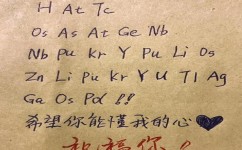 H At Tc
Os As At Ge Nb
Nb Pu Kr Y Pu Li Os
Zn Li Pu Kr Y U Tl Ag
Ga Os Pd !!
希望你能懂我的心♥
祝福你!